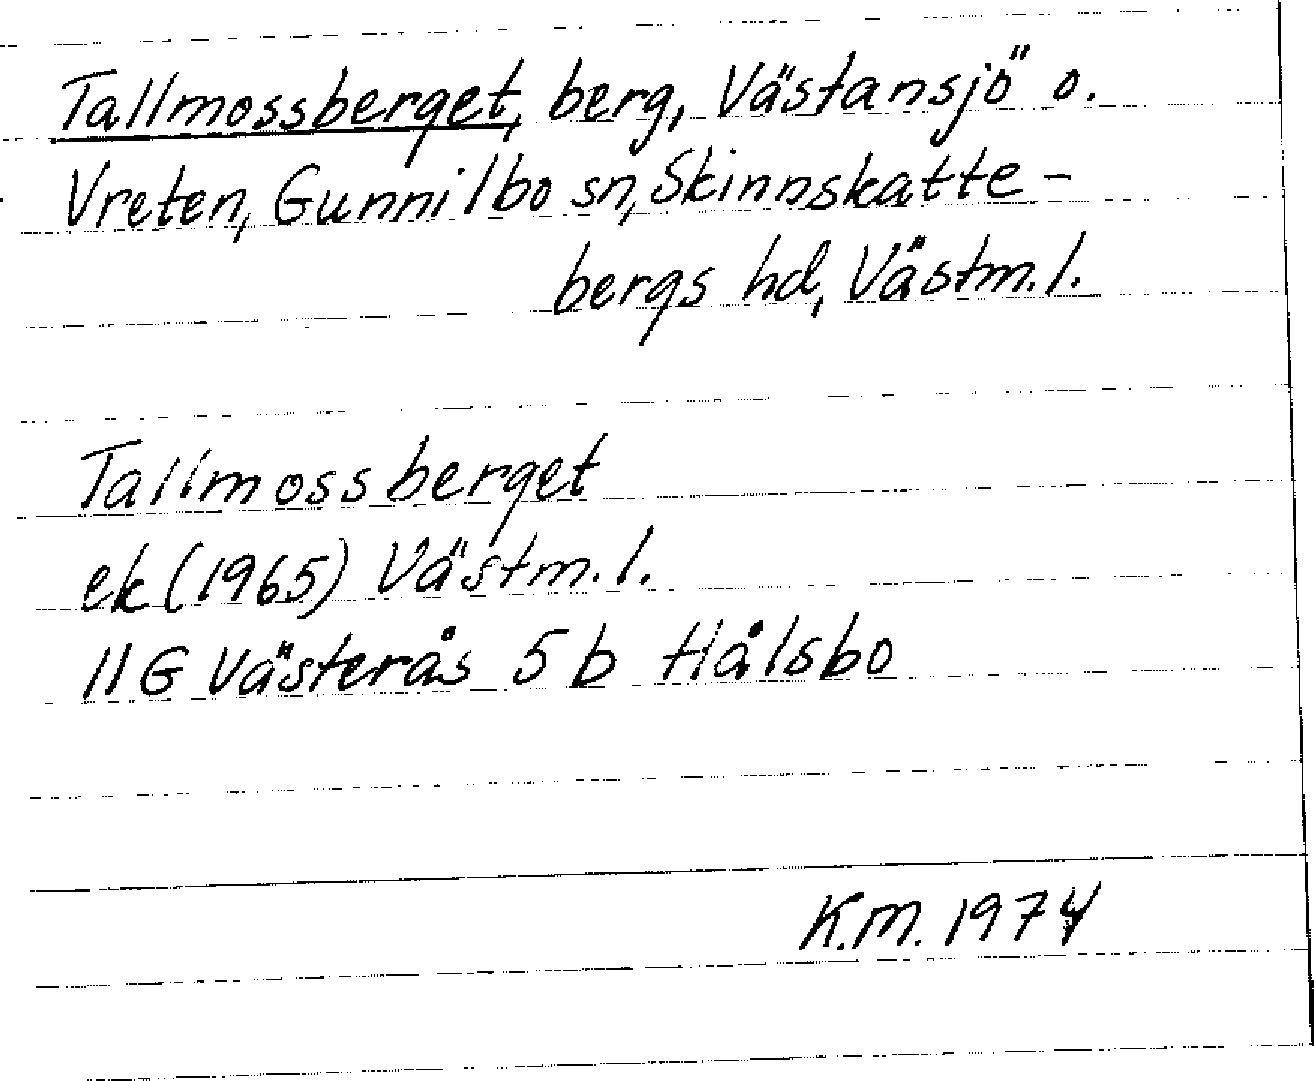 Tallmossberget, berg, Västansjö o.
Vreten, Gunnilbo sn, Skinnskatte-
bergs hd, Västm.l.
Tallmossberget
ek (1965) Västm.l.
11G Västerås 5 b Hålsbo
K.M. 1974